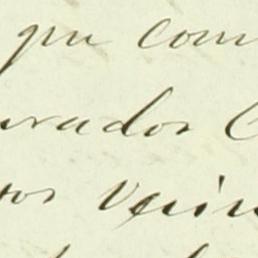 que com
urados C
ros vein